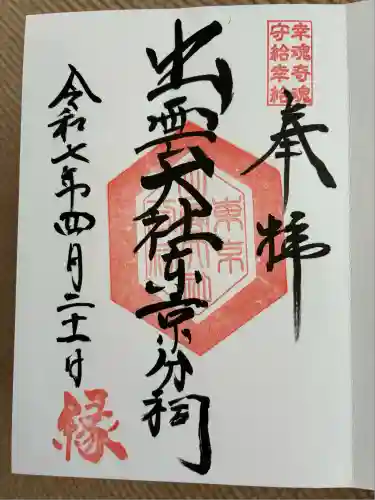 幸魂奇魂
守給幸給
奉拝
出雲大社東京分祠
東京
令和七年四月二十一日
縁